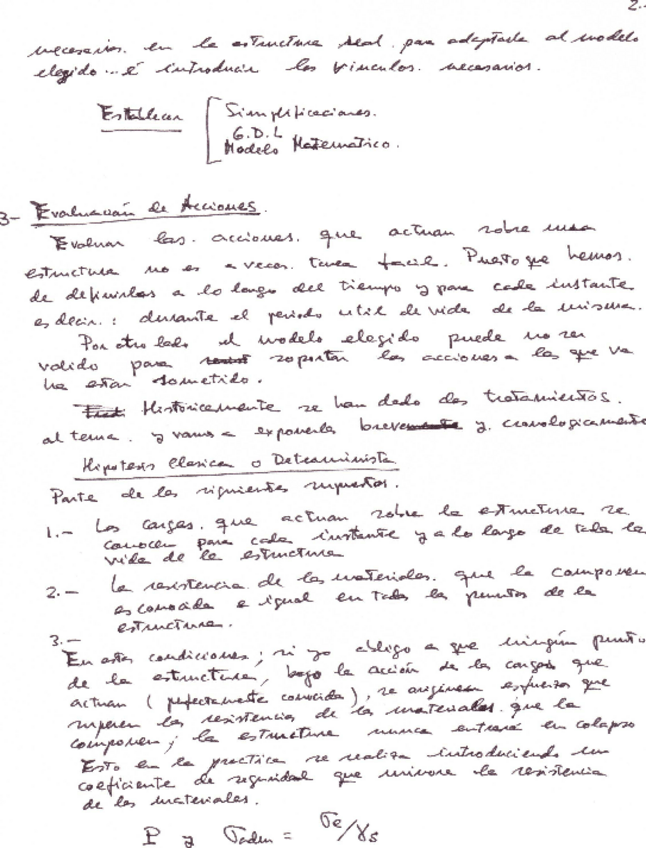 2.-
necesarios. en la estructura real. para adaptarla al modelo
elegido... é introducir los vinculos. necesarios.
Establecer
Simplificaciones.
G.D.L
Modelo Matematico.
3- Evaluación de Acciones.
Evaluar las. acciones. que actuan sobre una
estructura no es a veces. tarea facil. Puesto que hemos.
de definirlas a lo largo del tiempo y para cada instante
es decir.: durante el periodo util de vida de la misma.
Por otro lado el modelo elegido puede no ser
valido para soportar las acciones a las que va
ha estar sometido.
Historicamente se han dado dos tratamientos.
al tema. y vamos a exponerlos breve y. cronologicamente
Hipotesis Clasica o Determinista
Parte de los siguientes supuestos.
1.- Las cargas. que actuan sobre la estructura se
conocen para cada instante y a lo largo de toda la
vida de la estructura
2.- La resistencia de los materiales. que la componen
es conocida e igual en todos los puntos de la
estructura.
3.-
En estas condiciones; si yo obligo a que ningún punto
de la estructura, bajo la acción de las cargas que
actuan (perfectamente conocida), se originen esfuerzos que
superen las resistencias de los materiales. que la
componen; la estructura nunca entrará en colapso
Esto en la practica se realiza introduciendo un
coeficiente de seguridad que minore la resistencia
de los materiales.
P y σadm = σe/γs